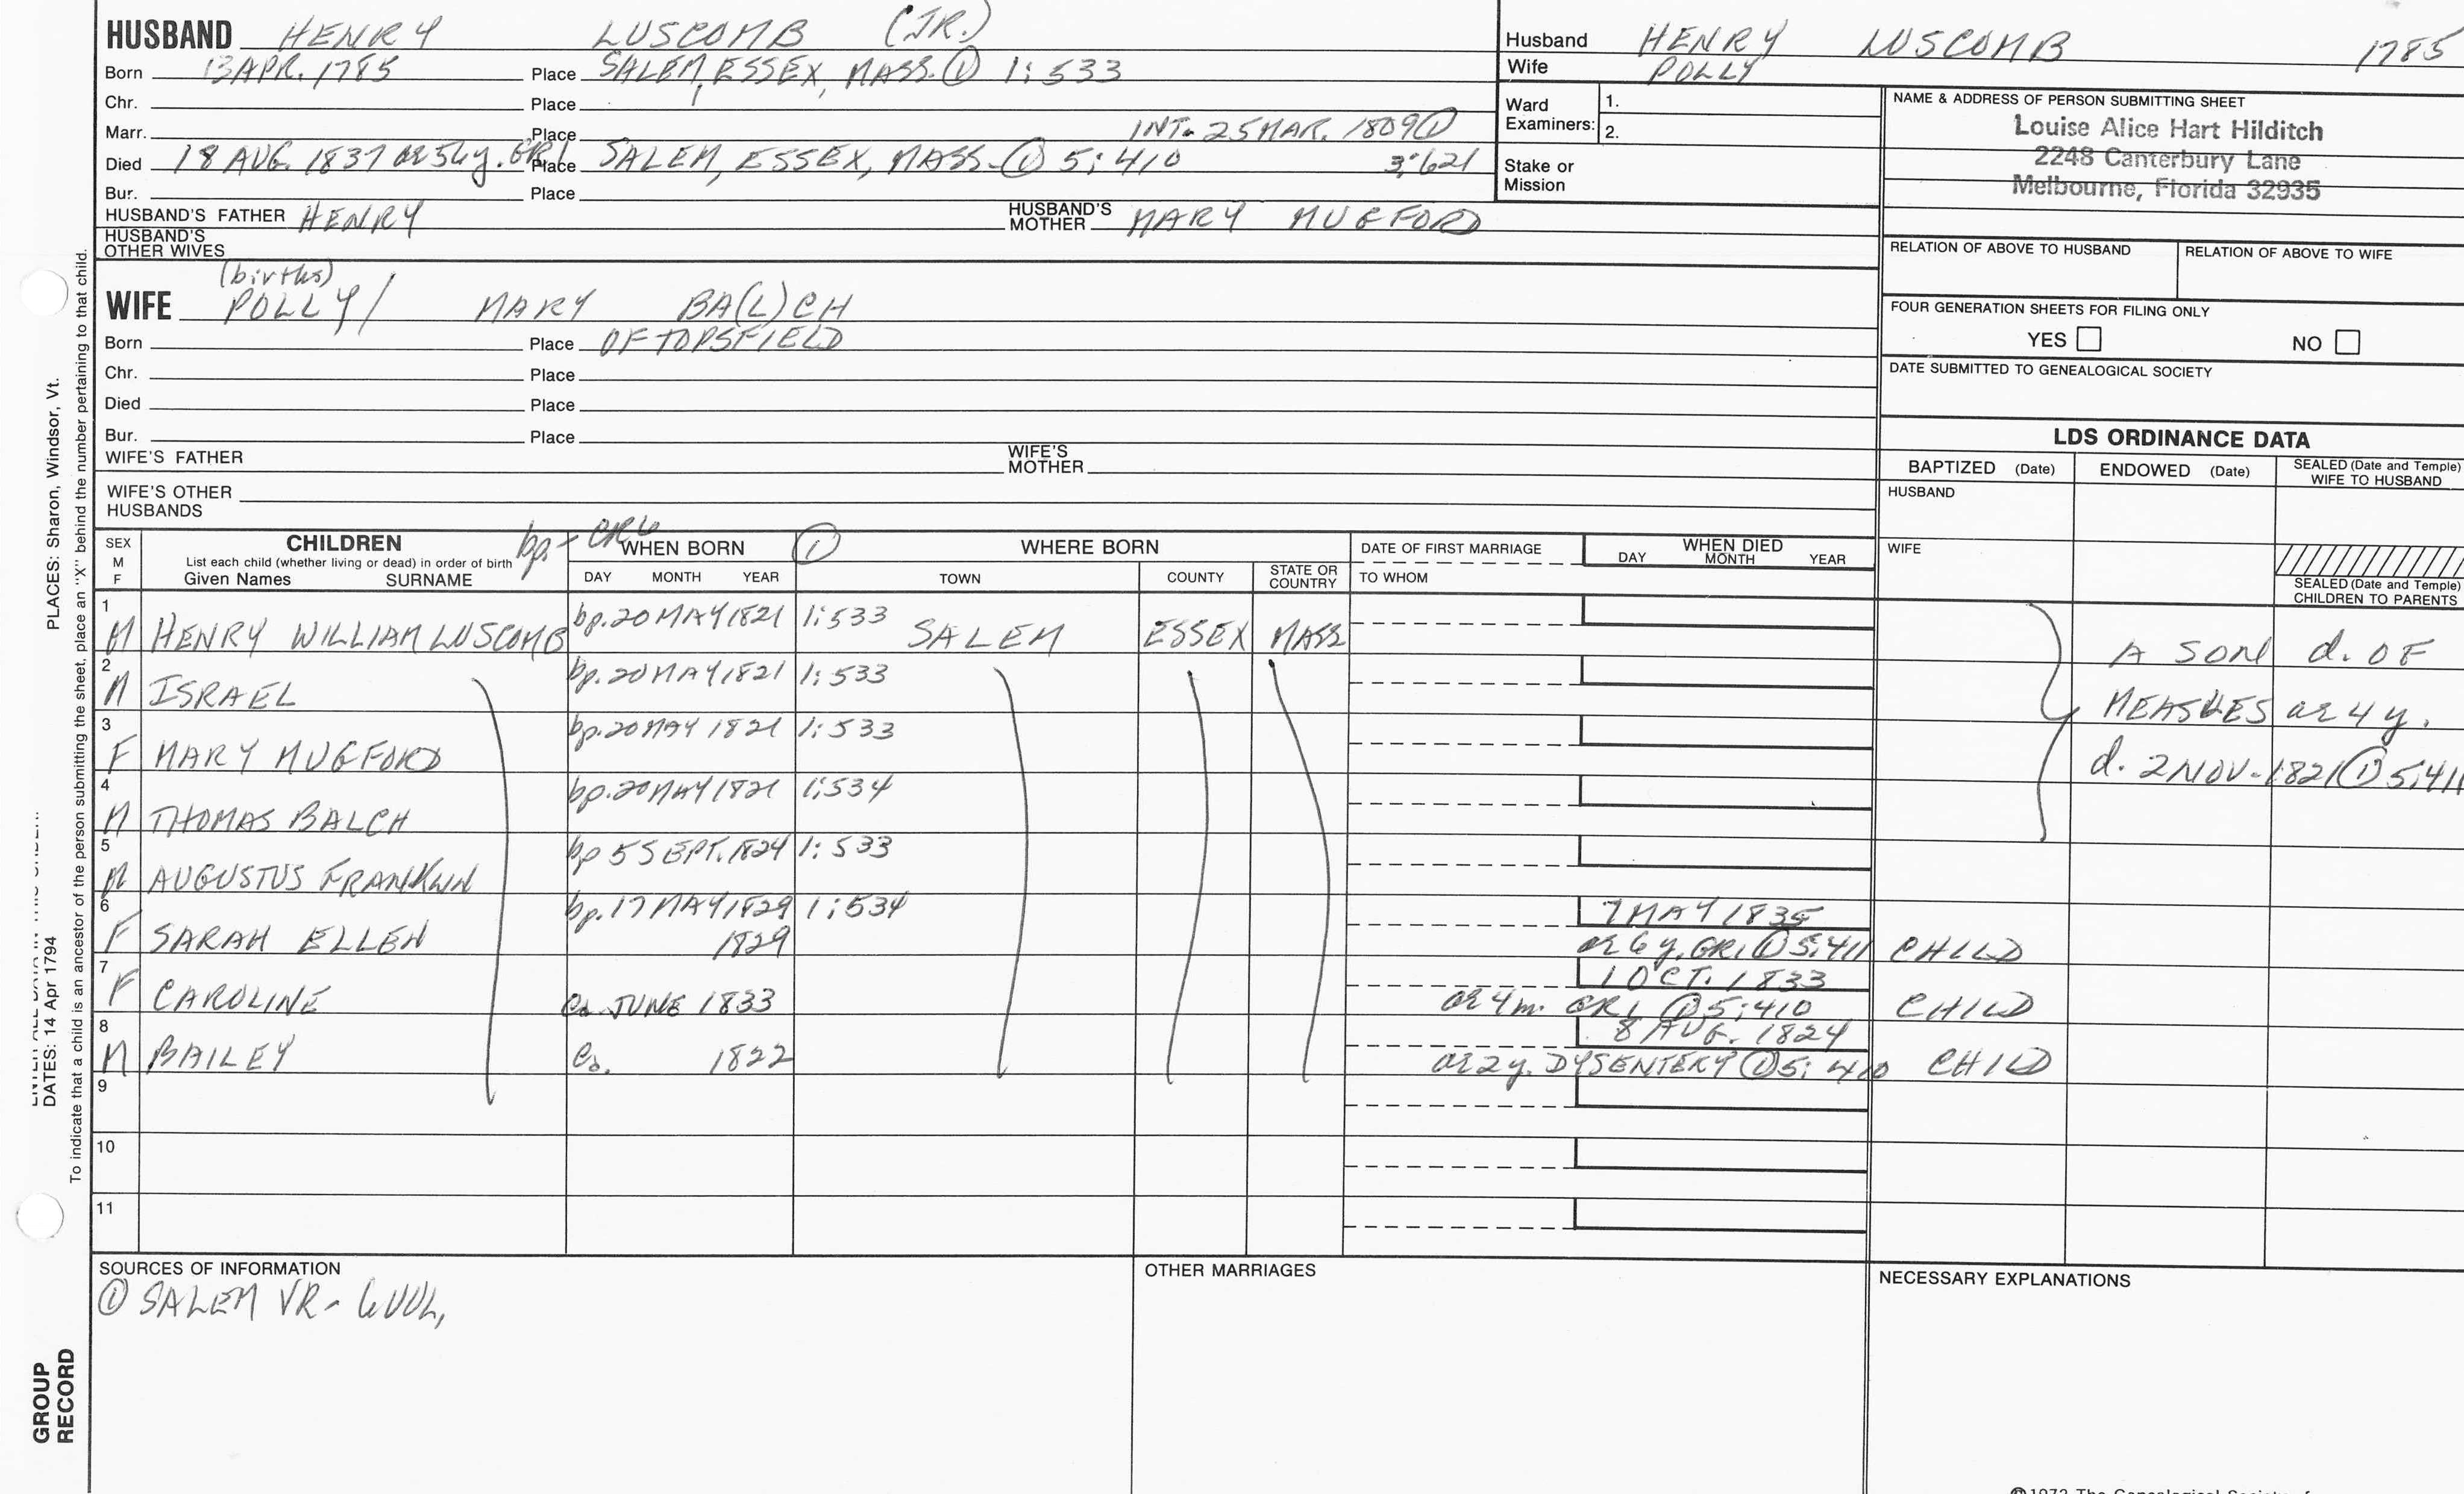 HUSBAND HENRY LUSCOMB (JR.)
Born 13 APR. 1785 Place SALEM, ESSEX, MASS. ① 1:533
Chr. Place
Marr. Place INT. 25 MAR. 1809 ①
3:621
Died 18 AUG. 1837 ae 54y. GR1 Place SALEM, ESSEX, MASS. ① 5:410
Bur. Place
HUSBAND'S FATHER HENRY HUSBAND'S MOTHER MARY MUGFORD
HUSBAND'S OTHER WIVES
(births)
WIFE POLLY/ MARY BA(L)CH
Born Place OF TOPSFIELD
Chr. Place
Died Place
Bur. Place
WIFE'S FATHER WIFE'S MOTHER
WIFE'S OTHER HUSBANDS
Husband HENRY LUSCOMB 1785
Wife POLLY
Ward Examiners: 1.
2.
Stake or Mission
NAME & ADDRESS OF PERSON SUBMITTING SHEET
Louise Alice Hart Hilditch
2248 Canterbury Lane
Melbourne, Florida 32935
RELATION OF ABOVE TO HUSBAND RELATION OF ABOVE TO WIFE
FOUR GENERATION SHEETS FOR FILING ONLY
YES NO
DATE SUBMITTED TO GENEALOGICAL SOCIETY
LDS ORDINANCE DATA
BAPTIZED (Date) ENDOWED (Date) SEALED (Date and Temple) WIFE TO HUSBAND
HUSBAND
WIFE
SEALED (Date and Temple) CHILDREN TO PARENTS
SEX M F CHILDREN bp - CR6 WHEN BORN ① WHERE BORN DATE OF FIRST MARRIAGE WHEN DIED
List each child (whether living or dead) in order of birth
Given Names SURNAME DAY MONTH YEAR TOWN COUNTY STATE OR COUNTRY TO WHOM DAY MONTH YEAR
1 M HENRY WILLIAM LUSCOMB bp. 20 MAY 1821 1:533 SALEM ESSEX MASS
2 M ISRAEL bp. 20 MAY 1821 1:533
3 F MARY MUGFORD bp. 20 MAY 1821 1:533
4 M THOMAS BALCH bp. 20 MAY 1821 1:534
A SON d. OF
MEASLES ae 4 y.
d. 2 NOV. 1821 ① 5:411
5 M AUGUSTUS FRANKLIN bp 5 SEPT. 1824 1:533
6 F SARAH ELLEN bp. 17 MAY 1829 1:534 7 MAY 1835
1829 ae 6 y. GR1 ① 5:411 CHILD
7 F CAROLINE ca. JUNE 1833 1 OCT. 1833
ae 4 m. GR1 ① 5:410 CHILD
8 M BAILEY ca. 1822 8 AUG. 1824
ae 2 y. DYSENTERY ① 5:410 CHILD
9
10
11
SOURCES OF INFORMATION
① SALEM VR - 6 VOL,
OTHER MARRIAGES
NECESSARY EXPLANATIONS
PLACES: Sharon, Windsor, Vt.
DATES: 14 Apr 1794
To indicate that a child is an ancestor of the person submitting the sheet, place an "X" behind the number pertaining to that child.
GROUP RECORD